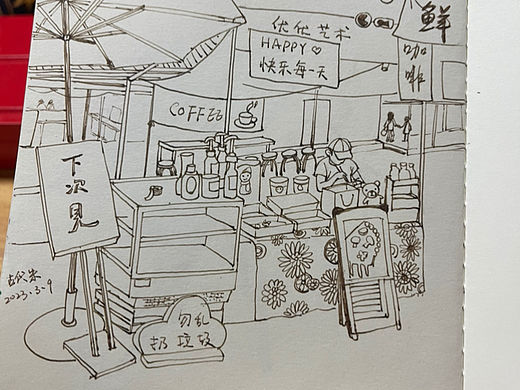 优优艺术
HAPPY♡
快乐每一天
鲜
咖啡
COFFEE
下次见
2023.3.9
勿乱
扔垃圾